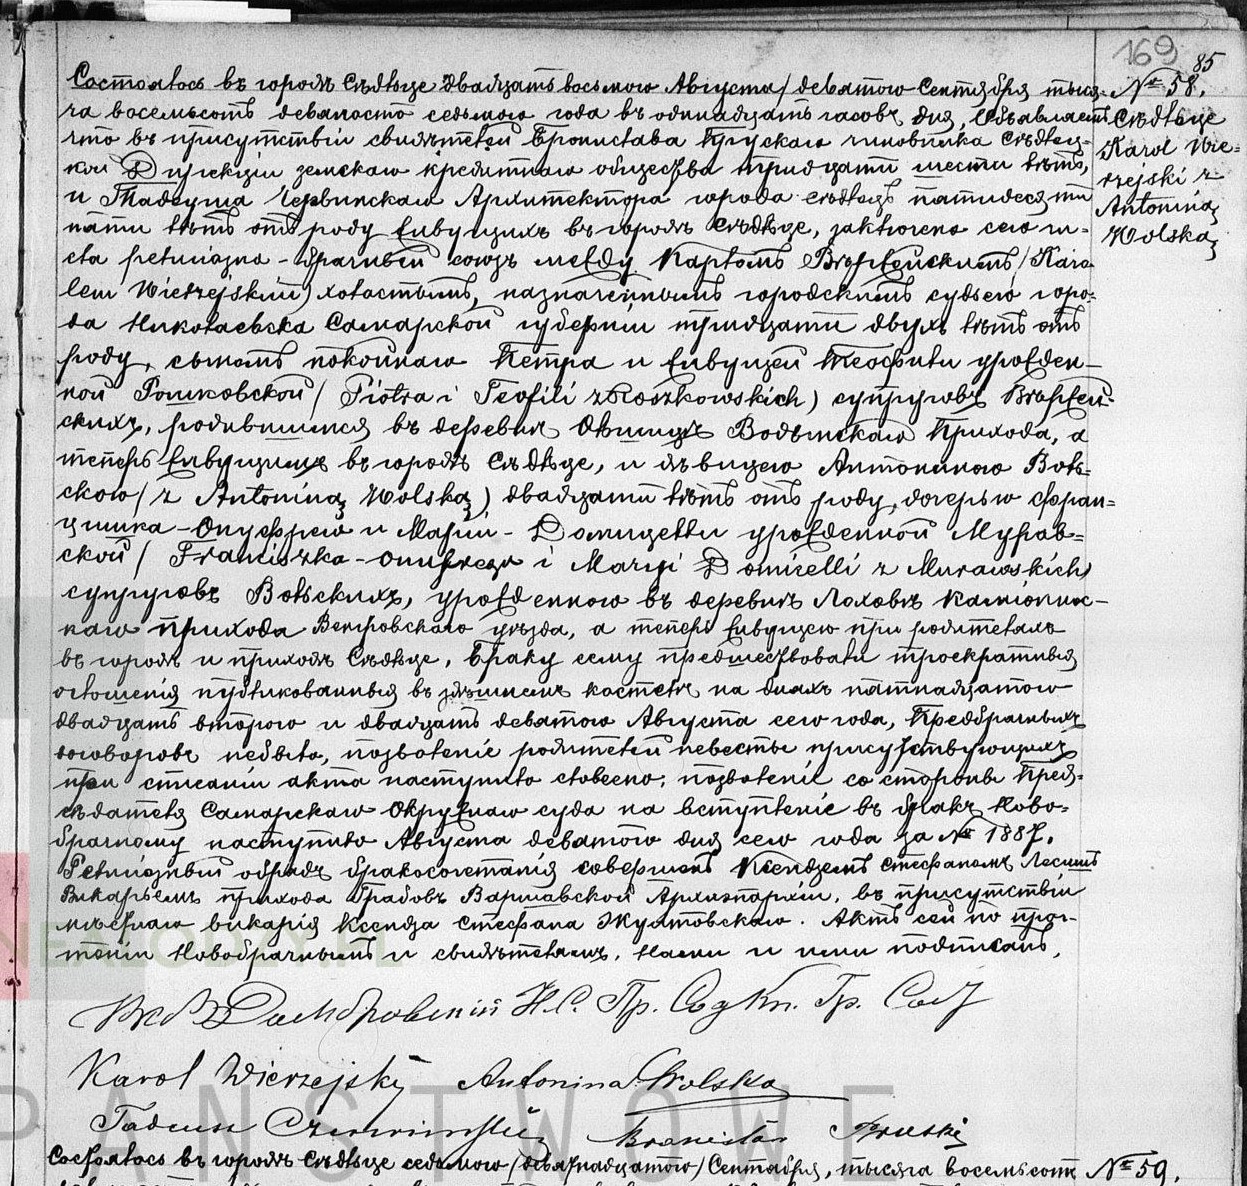 169
85
№ 58.
Сѣдльце
Karol Wie-
rzejski z
Antoniną
Wolską
Состоялось въ городѣ Сѣдльце двадцать восьмого Августа / девятого Сентября тыся-
ча восемьсотъ девяносто седьмого года въ одинадцать часовъ дня. Объявляемъ
что въ присутствіи свидѣтелей Бронислава Прускаго чиновника Сѣдлец-
кой Дирекціи земскаго кредитнаго общества тридцати шести лѣтъ,
и Тадеуша Червинскаго Архитектора города Сѣдлецъ пятидесяти
пяти лѣтъ отъ роду живущихъ въ городѣ Сѣдльце, заключено сего чи-
сла религіозно-брачный союзъ между Карломъ Вержейскимъ / Karo-
lem Wierzejskim) холостымъ, назначеннымъ городскимъ судьею горо-
да Николаевска Самарской губерніи тридцати двухъ лѣтъ отъ
роду, сыномъ покойнаго Петра и живущей Теофили урожден-
ной Рошковской / Piotra i Teofili z Roszkowskich) супруговъ Вержей-
скихъ, родившимся въ деревнѣ Водынскаго прихода, а
теперь живущимъ въ городѣ Сѣдльце, и дѣвицею Антониною Воль-
скою / z Antoniną Wolską) двадцати лѣтъ отъ роду, дочерью Фран-
цишка-Онуфрего и Маріи-Домицелли урожденной Мурав-
ской / Franciszka-Onufrego i Maryi Domicelli z Murawskich)
супруговъ Вольскихъ, урожденною въ деревнѣ Лоховѣ Каміоннос-
наго прихода Венгровскаго уѣзда, а теперь живущею при родителяхъ
въ городѣ и приходѣ Сѣдльце. Браку сему предшествовали троекратныя
оглошенія публикованныя въ здѣшнемъ костелѣ на дняхъ пятнадцатого
двадцать второго и двадцать девятого Августа сего года, Предбрачныхъ
договоровъ небыло, позволеніе родителей невесты присутствующихъ
при списаніи акта наступило словесно; позволеніе со стороны Пред-
сѣдателя Самарскаго Окружнаго суда на вступленіе въ бракъ Ново-
брачному наступило Августа девятого дня сего года за № 1887.
Религіозный обрядъ бракосочетанія совершенъ Ксендземъ Стефаномъ
Викарьемъ прихода Грабовъ Варшавской Архиепархіи, въ присутствіи
мѣстнаго викарія Ксендза Стефана Жултовскаго. Актъ сей по проч-
теніи Новобрачнымъ и свидѣтелямъ, Нами и ими подписанъ.
Домбровскій Н.С. Пр. Сѣд Кп. Гр. Сост
Karol Wierzejski Antonina Wolska
Tadeusz Czerwiński Bronisław Pruski
Состоялось въ городѣ Сѣдльце седьмого / девятнадцатого / Сентября, тысяча восемьсотъ
№ 59.
NEALODZY.PL
PAŃSTWOWE